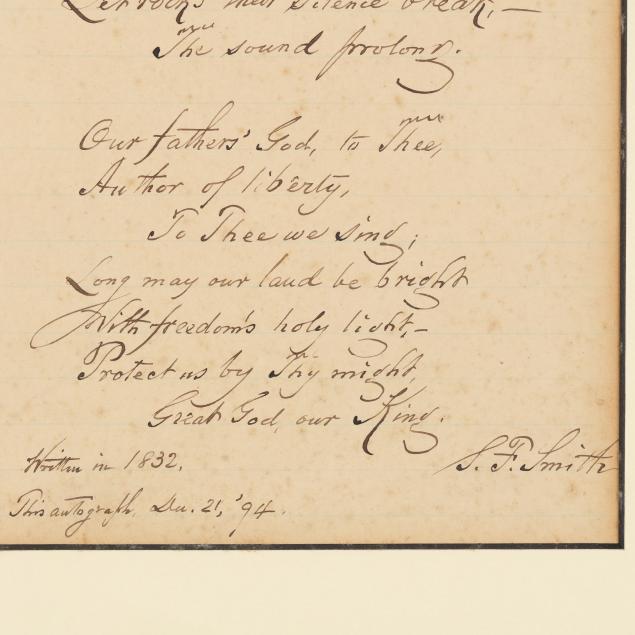 Let rocks their silence break,—
The sound prolong.
Our fathers' God, to Thee,
Author of liberty,
To Thee we sing;
Long may our land be bright
With freedom's holy light,—
Protect us by Thy might,
Great God, our King.
S. F. Smith
Written in 1832.
This autograph, Dec. 21, '94.